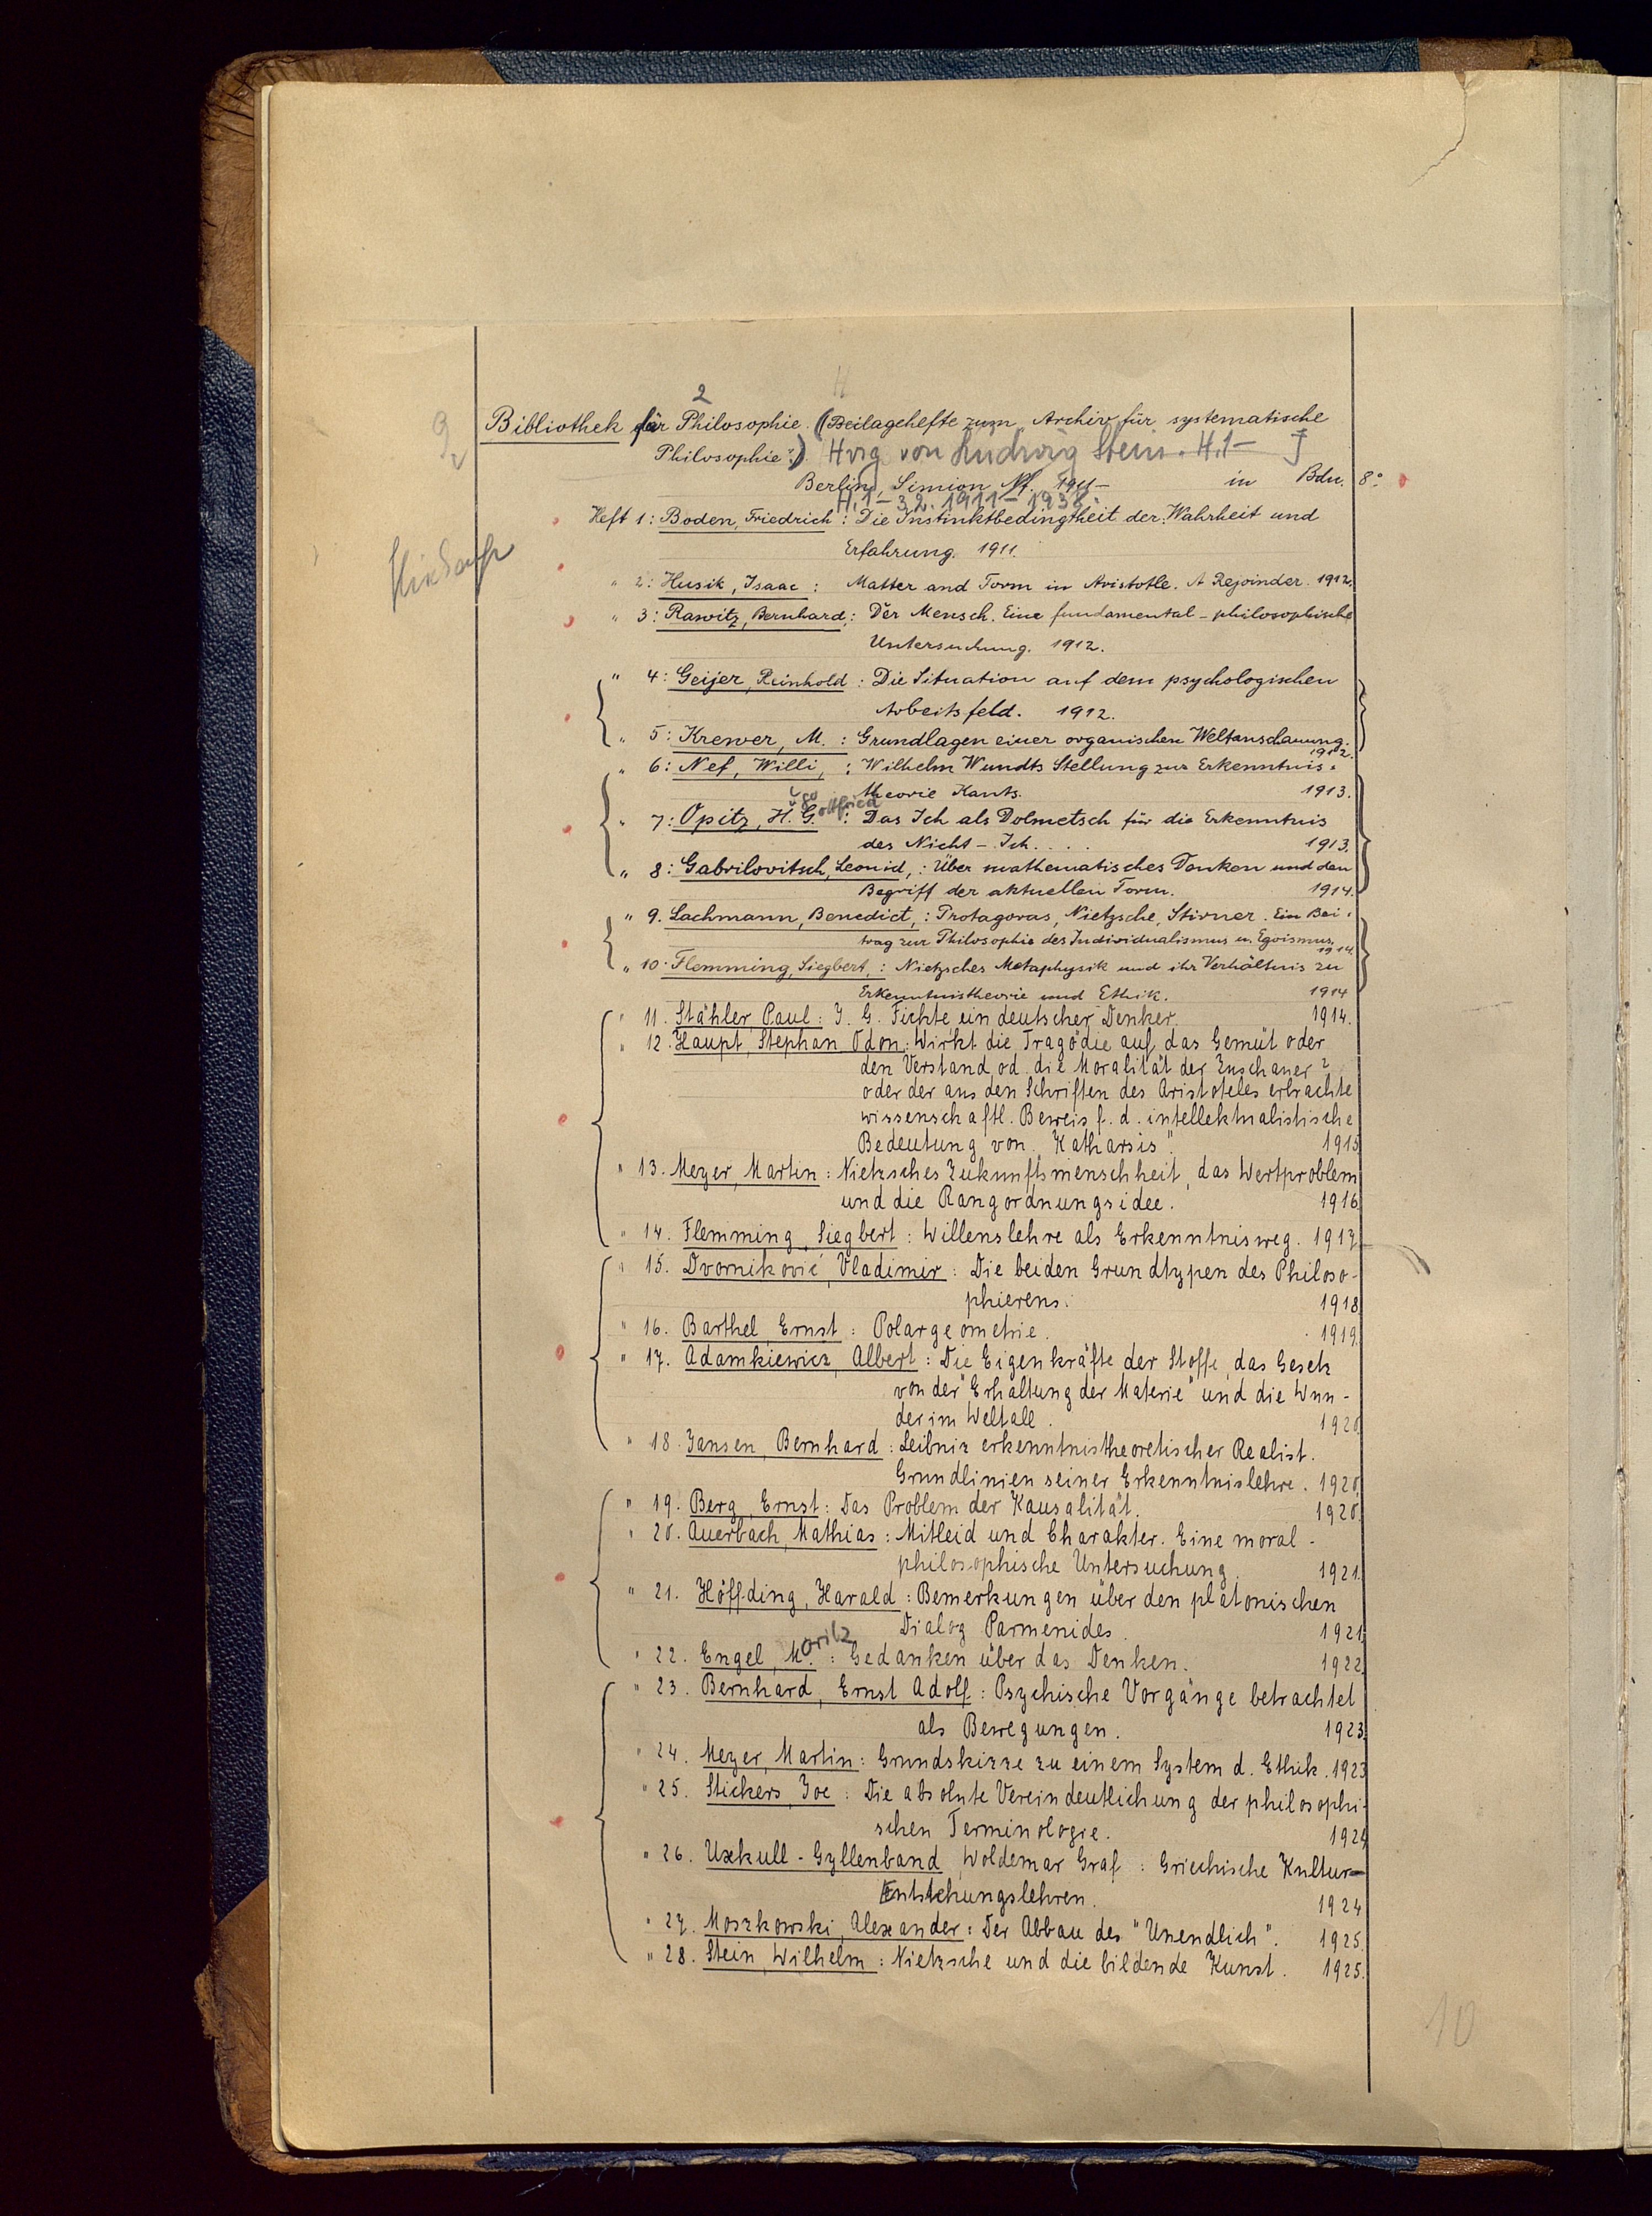 2
Bibliothek für Philosophie. (Beilagehefte zum Archiv für systematische
Philosophie.) Hrsg von Ludwig Stein. H.1-
Berlin, Simion Nf. 1911- in Bdn. 8°
H. 1-32. 1911-1938.
Heft 1: Boden, Friedrich: Die Instinktbedingtheit der Wahrheit und
Erfahrung. 1911.
" 2: Husik, Isaac: Matter and Form in Aristotle. A Rejoinder. 1912.
" 3: Rawitz, Bernhard: Der Mensch. Eine fundamental-philosophische
Untersuchung. 1912.
" 4: Geijer, Reinhold: Die Situation auf dem psychologischen
Arbeitsfeld. 1912.
" 5: Krewer, M.: Grundlagen einer organischen Weltanschauung.
1912.
" 6: Nef, Willi,: Wilhelm Wundts Stellung zur Erkenntnis-
theorie Kants. 1913.
ugo ottfried
" 7: Opitz, H. G.: Das Ich als Dolmetsch für die Erkenntnis
des Nicht-Ich.... 1913.
" 8: Gabrilovitsch, Leonid,: Über mathematisches Denken und den
Begriff der aktuellen Form. 1914.
" 9. Lachmann, Benedict,: Protagoras, Nietzsche, Stirner. Ein Bei-
trag zur Philosophie des Individualismus u. Egoismus.
1914.
" 10. Flemming, Siegbert,: Nietzsches Metaphysik und ihr Verhältnis zu
Erkenntnistheorie und Ethik. 1914
" 11. Stähler, Paul: J. G. Fichte ein deutscher Denker. 1914.
" 12. Haupt, Stephan Ödon: Wirkt die Tragödie auf das Gemüt oder
den Verstand od. die Moralität der Zuschauer?
oder der aus den Schriften des Aristoteles erbrachte
wissenschaftl. Beweis f. d. intellektualistische
Bedeutung von „Katharsis". 1915
" 13. Meyer, Martin: Nietzsches Zukunftsmenschheit, das Wertproblem
und die Rangordnungsidee. 1916.
" 14. Flemming, Siegbert: Willenslehre als Erkenntnisweg. 1917.
" 15. Dvorniković, Vladimir: Die beiden Grundtypen des Philoso-
phierens. 1918
" 16. Barthel, Ernst: Polargeometrie. 1919.
" 17. Adamkiewicz, Albert: Die Eigenkräfte der Stoffe, das Gesetz
von der "Erhaltung der Materie" und die Wun-
der im Weltall. 1920.
" 18. Jansen, Bernhard: Leibniz erkenntnistheoretischer Realist.
Grundlinien seiner Erkenntnislehre. 1920.
" 19. Berg, Ernst: Das Problem der Kausalität. 1920.
" 20. Auerbach, Mathias: Mitleid und Charakter. Eine moral-
philosophische Untersuchung. 1921.
" 21. Höffding, Harald: Bemerkungen über den platonischen
Dialog Parmenides. 1921.
" 22. Engel, Moritz: Gedanken über das Denken. 1922.
" 23. Bernhard, Ernst Adolf: Psychische Vorgänge betrachtet
als Bewegungen. 1923.
" 24. Meyer, Martin: Grundskizze zu einem System d. Ethik. 1923
" 25. Stickers, Joe: Die absolute Vereindeutlichung der philosophi-
schen Terminologie. 1924
" 26. Uxkull-Gyllenband, Woldemar Graf: Griechische Kultur-
Entstehungslehren. 1924
" 27. Moszkowski, Alexander: Der Abbau des "Unendlich". 1925.
" 28. Stein, Wilhelm: Nietzsche und die bildende Kunst. 1925.
10